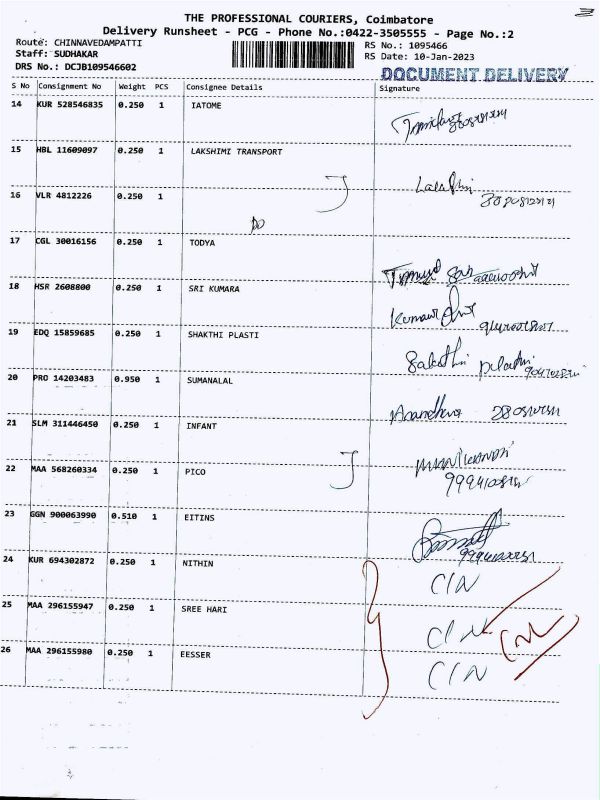 THE PROFESSIONAL COURIERS, Coimbatore
Delivery Runsheet - PCG - Phone No.:0422-3505555 - Page No.:2
Route: CHINNAVEDAMPATTI
RS No.: 1095466
Staff: SUDHAKAR
RS Date: 10-Jan-2023
DRS No.: DCJB109546602
DOCUMENT DELIVERY
S No Consignment No Weight PCS Consignee Details Signature
14 KUR 528546835 0.250 1 IATOME
15 HBL 11609097 0.250 1 LAKSHIMI TRANSPORT
16 VLR 4812226 0.250 1
17 CGL 30016156 0.250 1 TODYA
18 HSR 2608800 0.250 1 SRI KUMARA
19 EDQ 15859685 0.250 1 SHAKTHI PLASTI
20 PRO 14203483 0.950 1 SUMANALAL
21 SLM 311446450 0.250 1 INFANT
22 MAA 568260334 0.250 1 PICO
23 GGN 900063990 0.510 1 EITINS
24 KUR 694302872 0.250 1 NITHIN
CIN
25 MAA 296155947 0.250 1 SREE HARI
CIN
26 MAA 296155980 0.250 1 EESSER
CIN